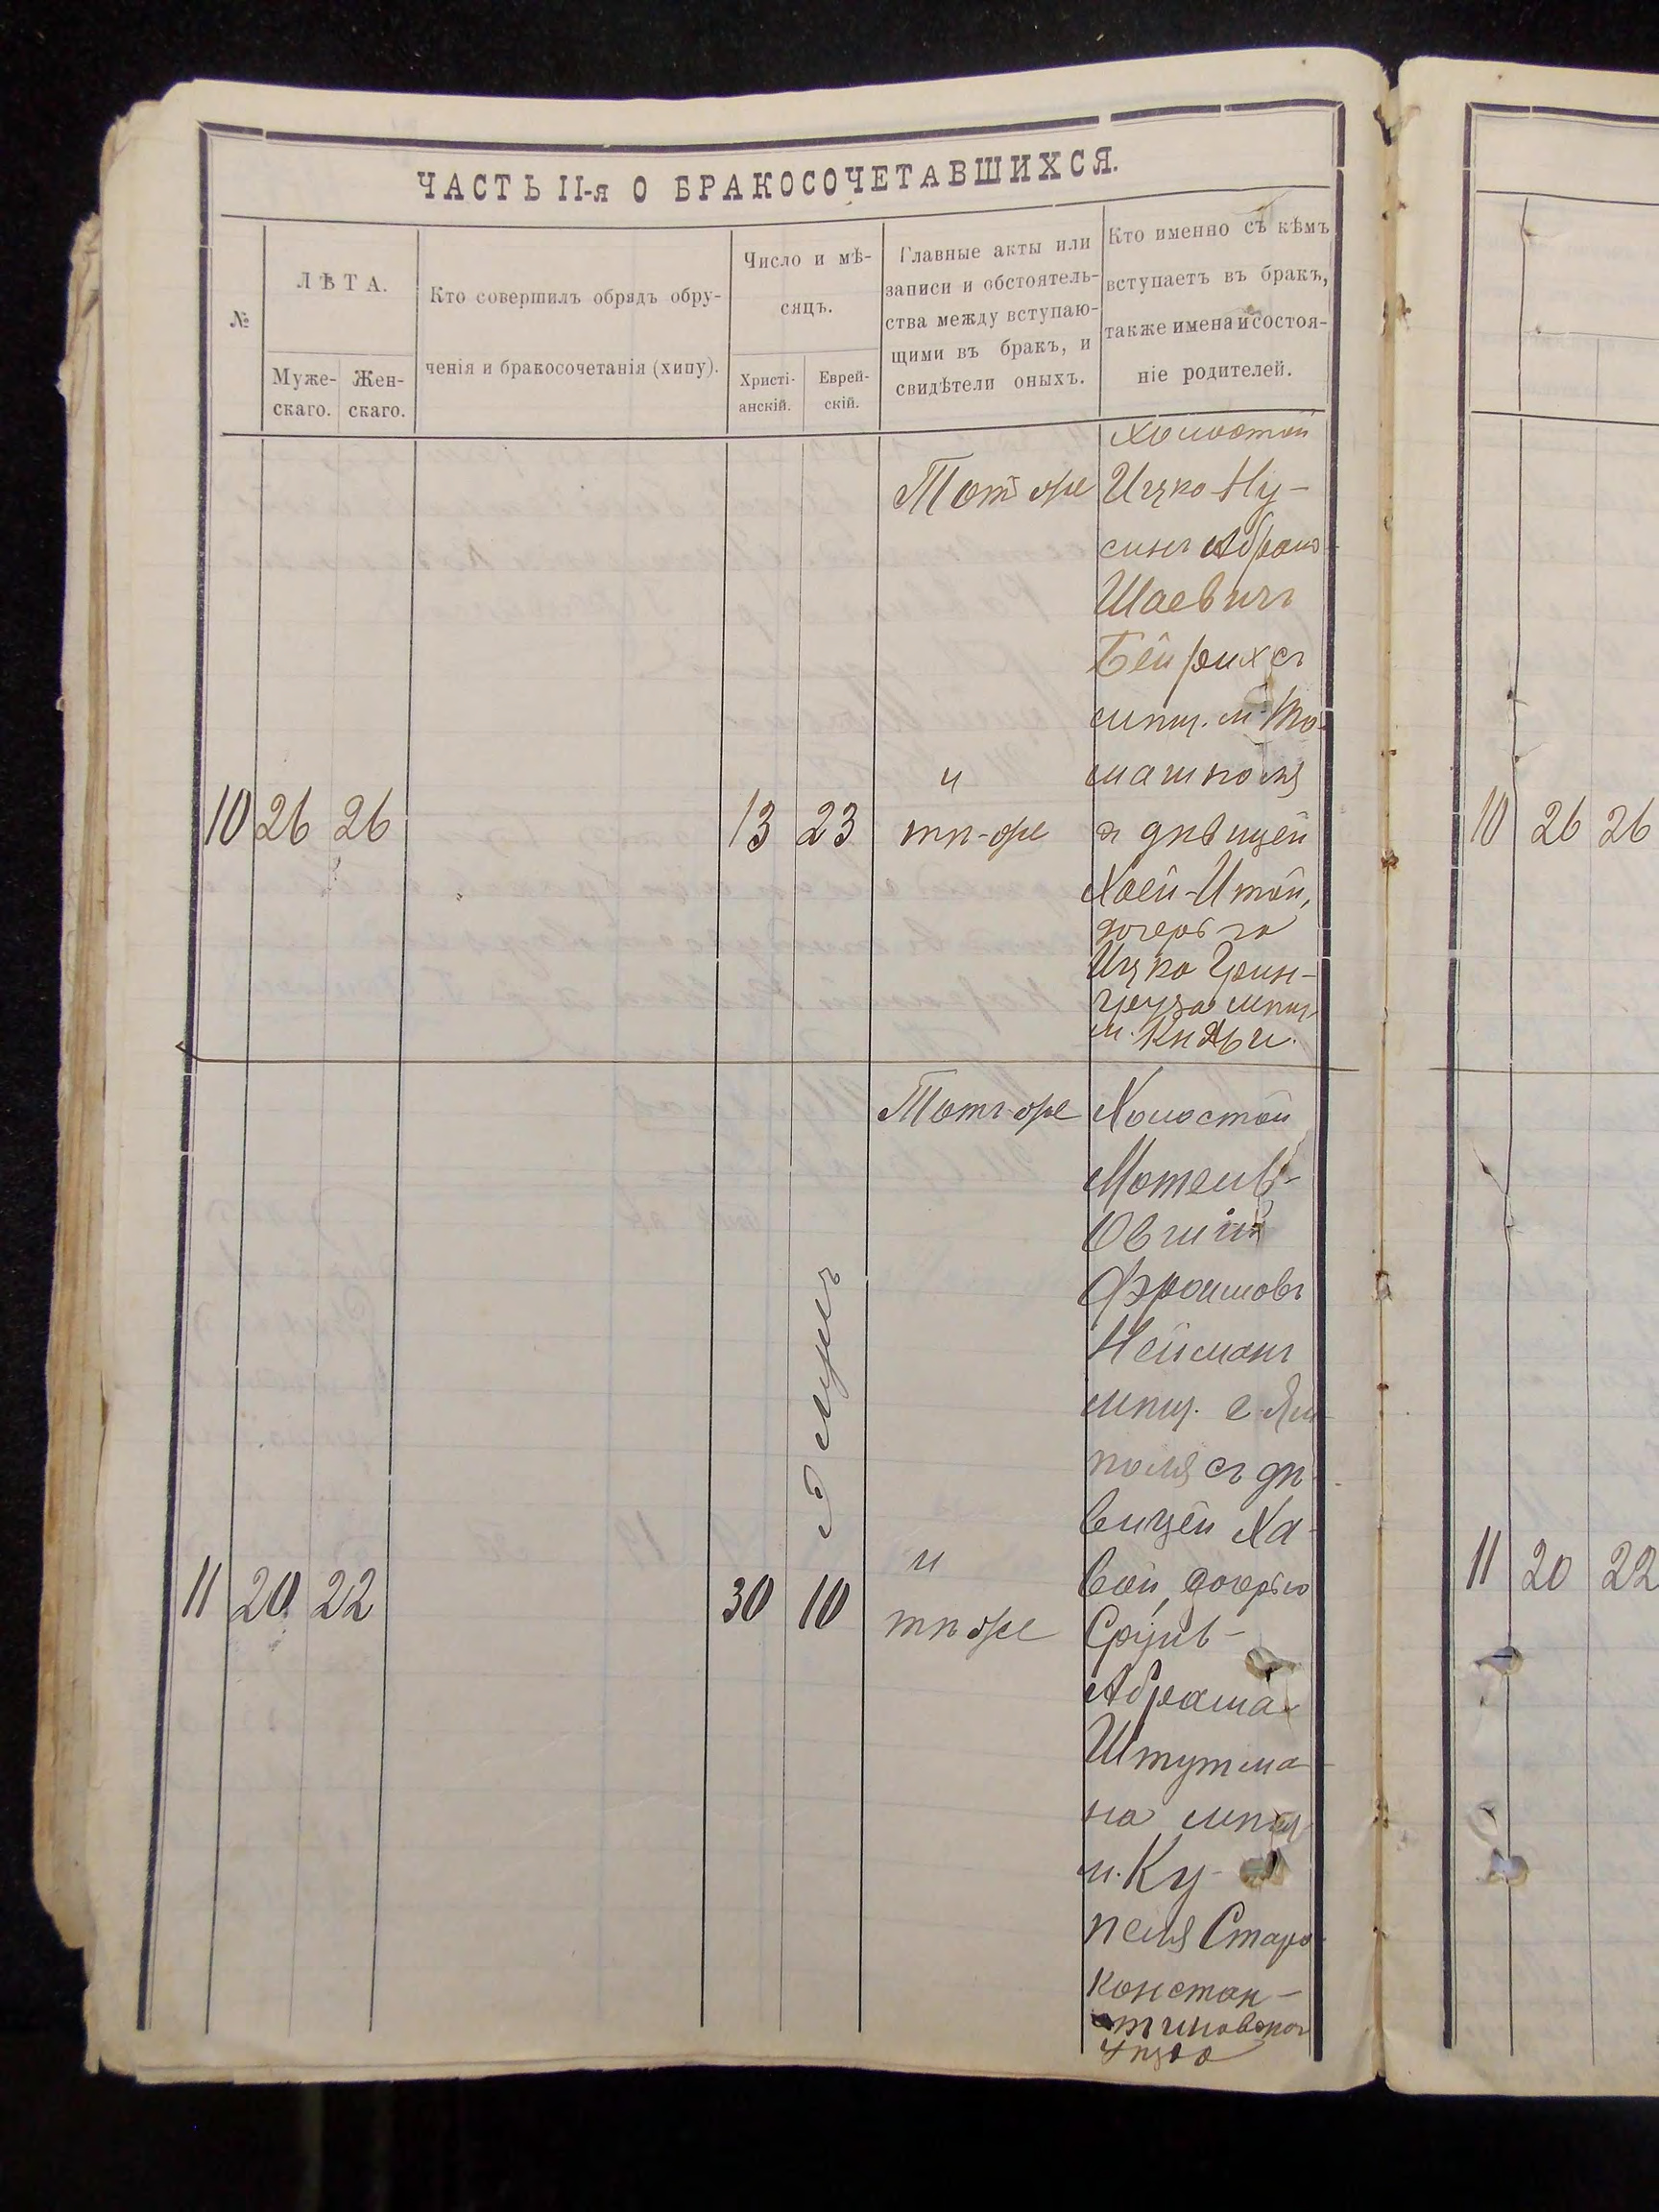 ЧАСТЬ II-я О БРАКОСОЧЕТАВШИХСЯ.
№
ЛѢТА.
Муже-
скаго.
Жен-
скаго.
Кто совершилъ обрядъ обру-
ченія и бракосочетанія (хипу).
Число и мѣ-
сяцъ.
Христі-
анскій.
Еврей-
скій.
Главные акты или
записи и обстоятель-
ства между вступаю-
щими въ бракъ, и
свидѣтели оныхъ.
Кто именно съ кѣмъ
вступаетъ въ бракъ,
также имена и состоя-
ніе родителей.
10 26 26
13 23
Тотъ же
и
тѣ-же
Холостой
Ицко-Ну-
синъ Абрамо
Шаевичъ
Бейрихсъ
мѣщ. м. То-
машполя
съ дѣвицей
Хаей-Итой,
дочерью
Ицка Грин-
груза мѣщ.
м. Княжи.
11 20 22
30 10
Элулъ
Тотъ-же
и
тѣ же
Холостой
Мотель-
Овшій
Фроимовъ
Нейманъ
мѣщ. с. Ям
поля съ дѣ
вицей Ха-
вой, дочерью
Сруль-
Абрама
Штутма-
на мѣщ
м. Ку-
пеля Старо
констан-
тиновскаго
уѣзда
10 26 26
11 20 22